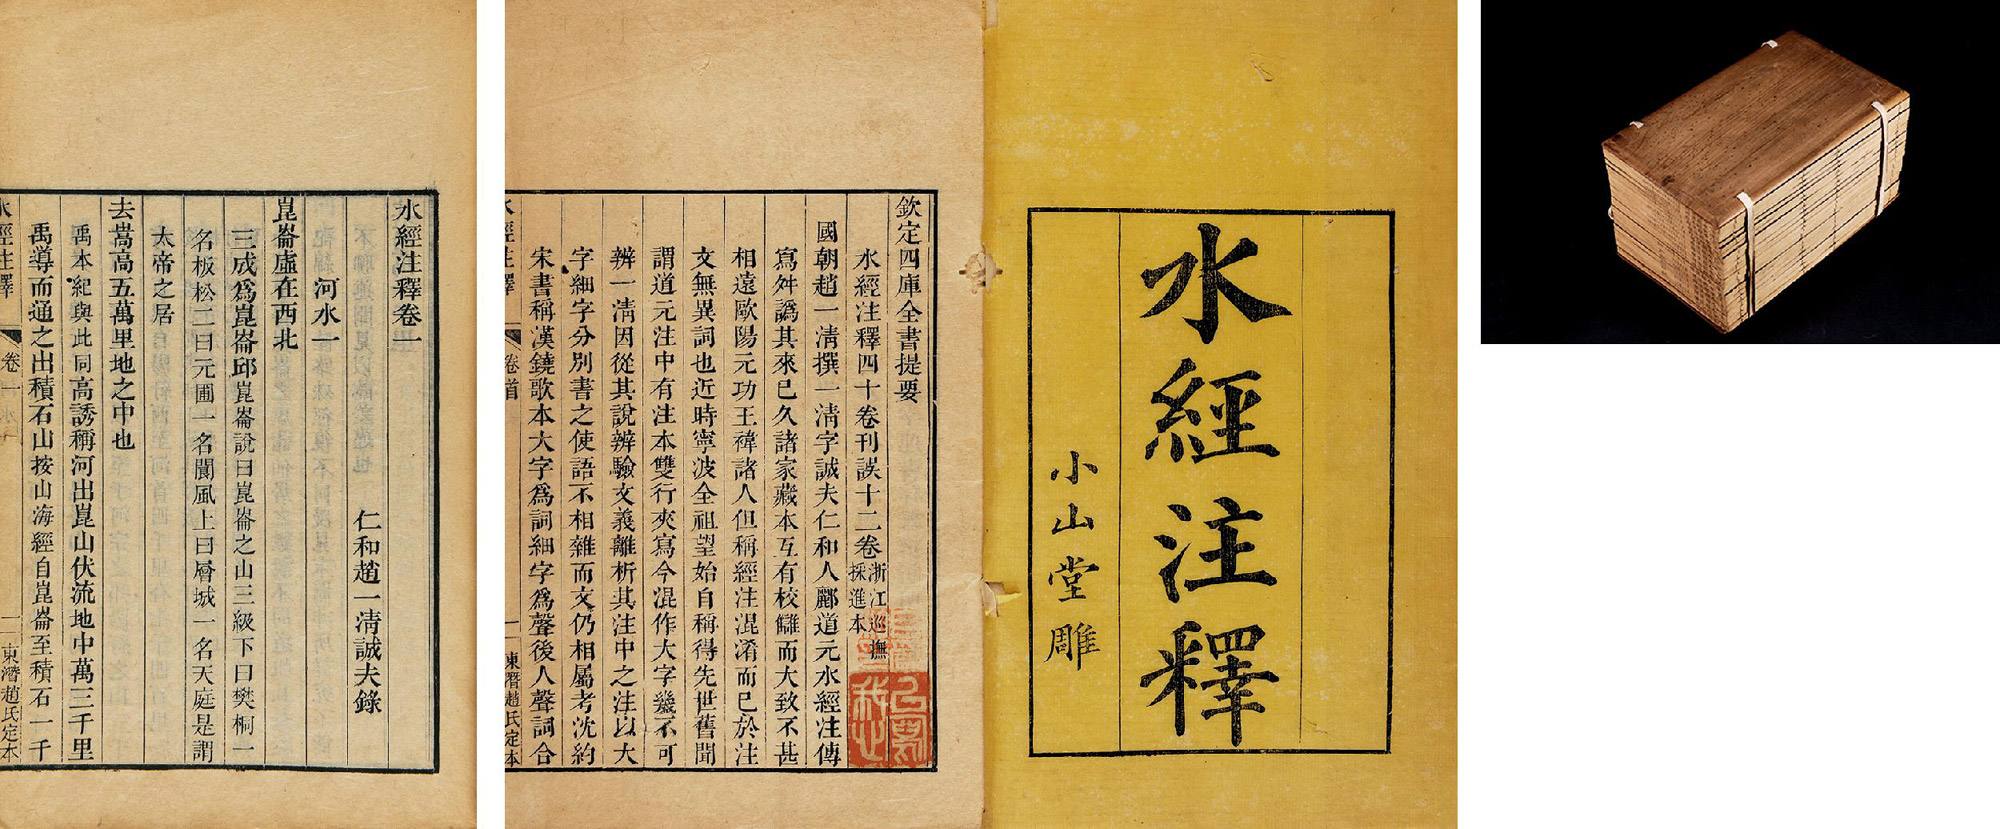 水經注釋
小山堂雕
欽定四庫全書提要
水經注釋四十卷刊誤十二卷浙江巡撫採進本
國朝趙一清撰一清字誠夫仁和人酈道元水經注傳
寫舛譌其來已久諸家藏本互有校讎而大致不甚
相遠歐陽元功王禕諸人但稱經注混淆而已於注
文無異詞也近時寧波全祖望始自稱得先世舊聞
謂道元注中有注本雙行夾寫今混作大字幾不可
辨一清因從其說辨驗文義離析其注中之注以大
字細字分別書之使語不相雜而文仍相屬考沈約
宋書稱漢鐃歌本大字爲詞細字爲聲後人聲詞合
水經注釋
卷首
一
東潛趙氏定本
水經注釋卷一
仁和趙一清誠夫錄
河水一
崑崙虛在西北
三成爲崑崙邱崑崙說曰崑崙之山三級下曰樊桐一
名板松二曰元圃一名閬風上曰層城一名天庭是謂
太帝之居
去嵩高五萬里地之中也
禹本紀與此同高誘稱河出崑山伏流地中萬三千里
禹導而通之出積石山按山海經自崑崙至積石一千
水經注釋
卷一
一
東潛趙氏定本